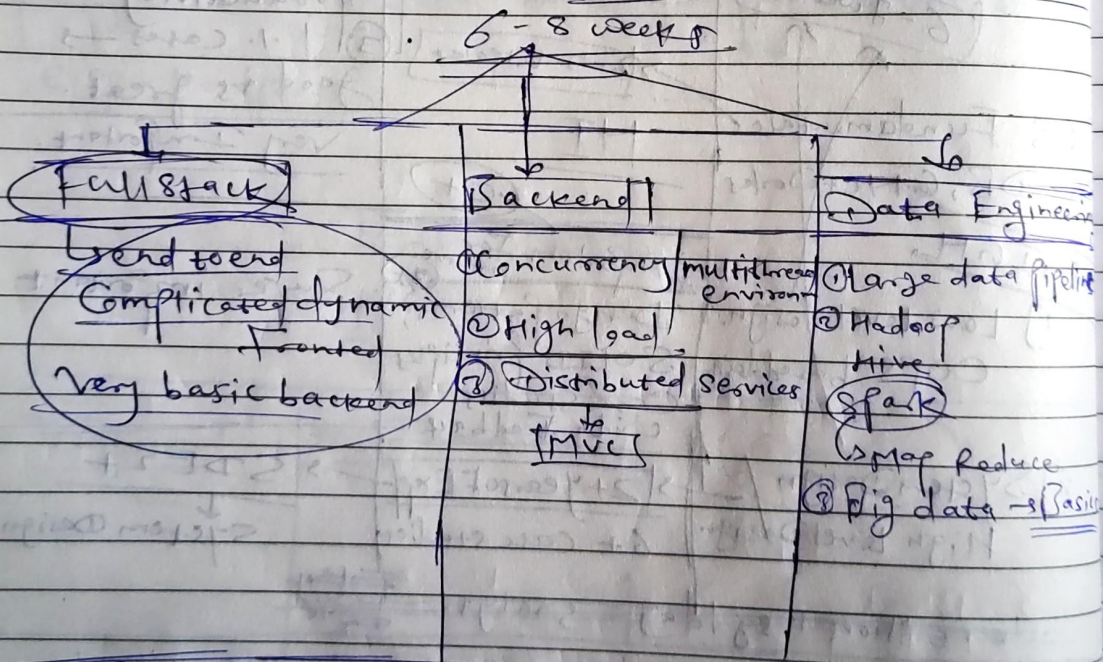 6 - 8 weeks
Full Stack
end to end
Complicated dynamic
Fronted
Very basic backend
Backend
① Concurrency
multithread
environm
② High load
③ Distributed services
MVC
Data Engineerin
① Large data pipeline
② Hadoop
Hive
Spark
Map Reduce
③ Big data → Basic